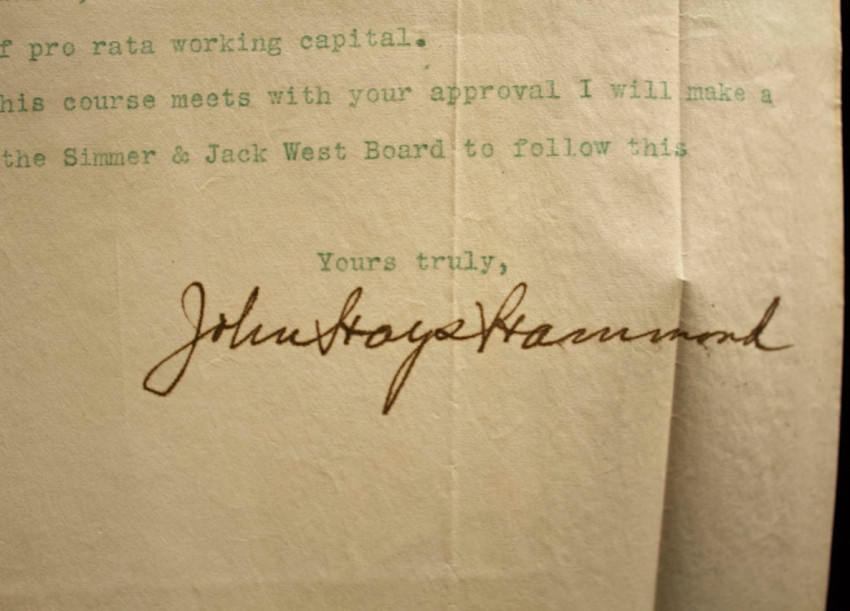 f pro rata working capital.
his course meets with your approval I will make a
the Simmer & Jack West Board to follow this
Yours truly,
John Hays Hammond